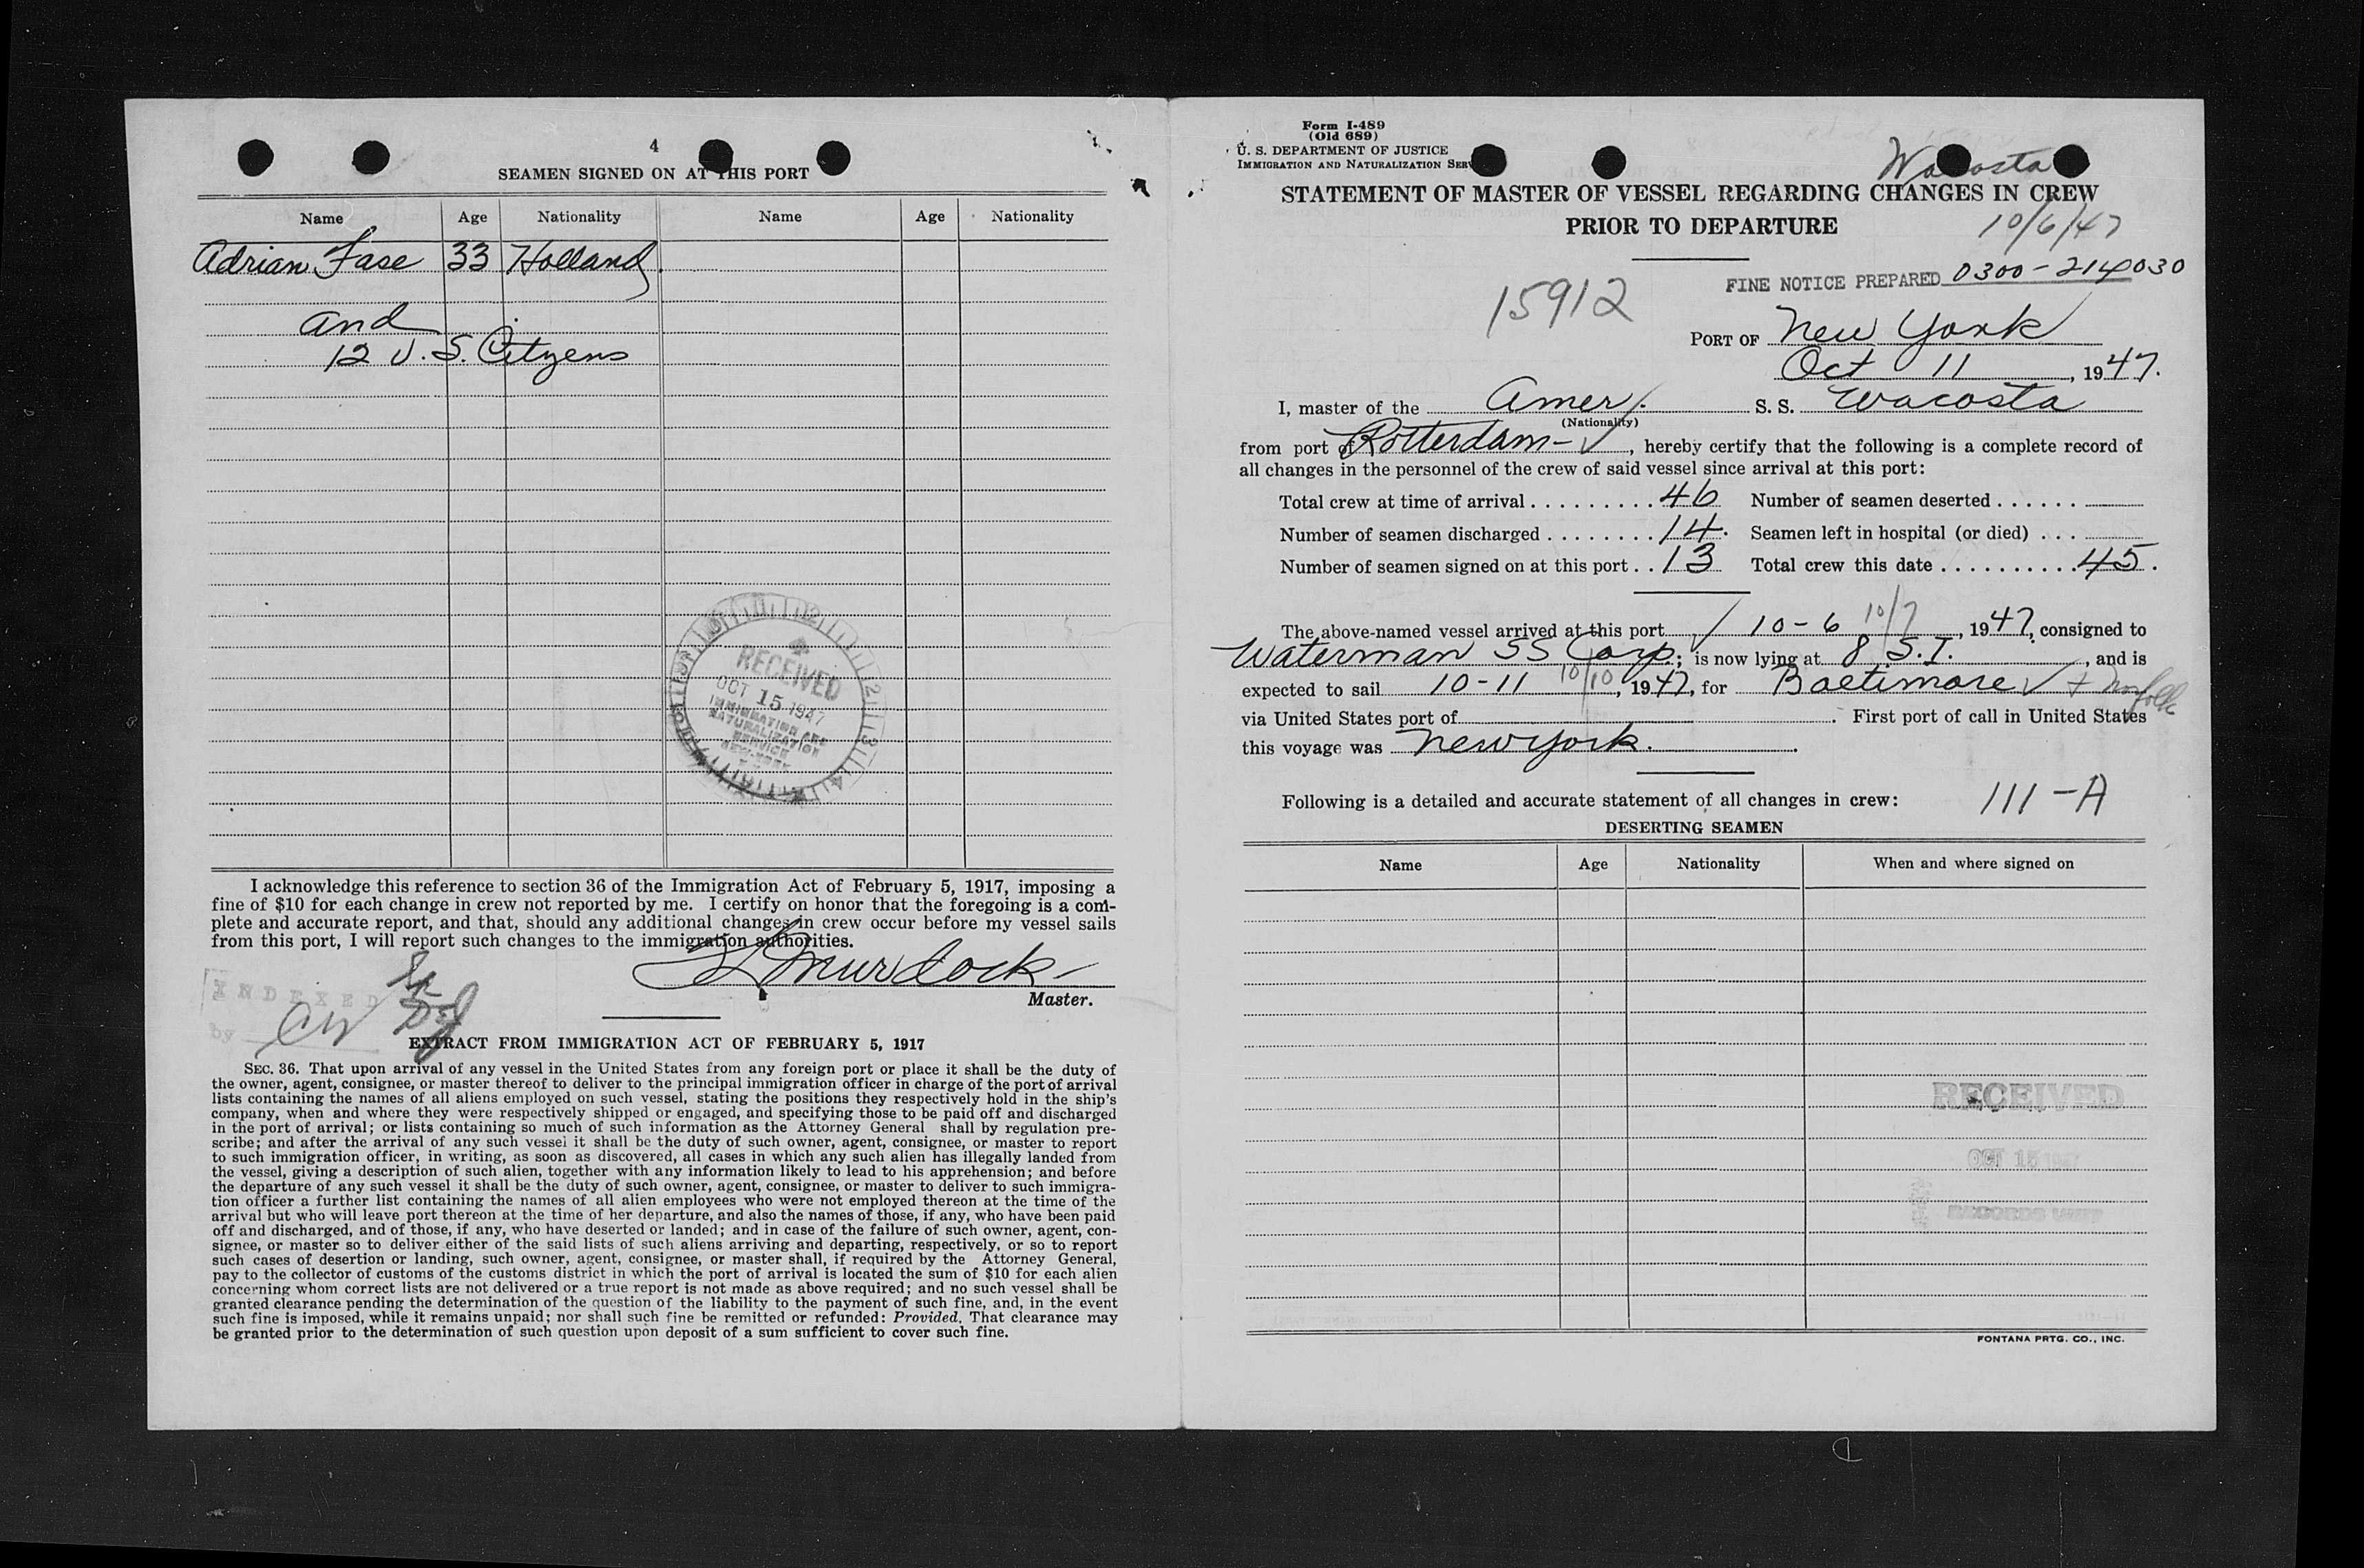 4
SEAMEN SIGNED ON AT THIS PORT
Name Age Nationality Name Age Nationality
Adrian Fase 33 Holland.
and
12 U.S. Cityens
RECEIVED
OCT 15 1947
IMMIGRATION AND
NATURALIZATION
SERVICE
NEW YORK
I acknowledge this reference to section 36 of the Immigration Act of February 5, 1917, imposing a
fine of $10 for each change in crew not reported by me. I certify on honor that the foregoing is a com-
plete and accurate report, and that, should any additional changes in crew occur before my vessel sails
from this port, I will report such changes to the immigration authorities.
Murdock
Master.
INDEXED
by
EXTRACT FROM IMMIGRATION ACT OF FEBRUARY 5, 1917
SEC. 36. That upon arrival of any vessel in the United States from any foreign port or place it shall be the duty of
the owner, agent, consignee, or master thereof to deliver to the principal immigration officer in charge of the port of arrival
lists containing the names of all aliens employed on such vessel, stating the positions they respectively hold in the ship's
company, when and where they were respectively shipped or engaged, and specifying those to be paid off and discharged
in the port of arrival; or lists containing so much of such information as the Attorney General shall by regulation pre-
scribe; and after the arrival of any such vessel it shall be the duty of such owner, agent, consignee, or master to report
to such immigration officer, in writing, as soon as discovered, all cases in which any such alien has illegally landed from
the vessel, giving a description of such alien, together with any information likely to lead to his apprehension; and before
the departure of any such vessel it shall be the duty of such owner, agent, consignee, or master to deliver to such immigra-
tion officer a further list containing the names of all alien employees who were not employed thereon at the time of the
arrival but who will leave port thereon at the time of her departure, and also the names of those, if any, who have been paid
off and discharged, and of those, if any, who have deserted or landed; and in case of the failure of such owner, agent, con-
signee, or master so to deliver either of the said lists of such aliens arriving and departing, respectively, or so to report
such cases of desertion or landing, such owner, agent, consignee, or master shall, if required by the Attorney General,
pay to the collector of customs of the customs district in which the port of arrival is located the sum of $10 for each alien
concerning whom correct lists are not delivered or a true report is not made as above required; and no such vessel shall be
granted clearance pending the determination of the question of the liability to the payment of such fine, and, in the event
such fine is imposed, while it remains unpaid; nor shall such fine be remitted or refunded: Provided, That clearance may
be granted prior to the determination of such question upon deposit of a sum sufficient to cover such fine.
Form I-489
(Old 689)
U. S. DEPARTMENT OF JUSTICE
IMMIGRATION AND NATURALIZATION SER
Wacosta
STATEMENT OF MASTER OF VESSEL REGARDING CHANGES IN CREW
PRIOR TO DEPARTURE
10/6/47
FINE NOTICE PREPARED 0300-214030
15912
PORT OF New York
Oct 11, 1947.
I, master of the Amer. S. S. Wacosta
(Nationality)
from port of Rotterdam-, hereby certify that the following is a complete record of
all changes in the personnel of the crew of said vessel since arrival at this port:
Total crew at time of arrival . . . . . . . . . 46 Number of seamen deserted . . . . . .
Number of seamen discharged . . . . . . . . 14. Seamen left in hospital (or died) . . .
Number of seamen signed on at this port . . 13 Total crew this date . . . . . . . . . . 45.
The above-named vessel arrived at this port ✓ 10-6 10/7, 1947, consigned to
Waterman SS Corp; is now lying at 8 S.I., and is
expected to sail 10-11 10/10, 1947, for Baltimore ✓ + Norfolk
via United States port of . First port of call in United States
this voyage was New York.
Following is a detailed and accurate statement of all changes in crew: 111-A
DESERTING SEAMEN
Name Age Nationality When and where signed on
RECEIVED
OCT 15 1947
RECORDS UNIT
FONTANA PRTG. CO., INC.